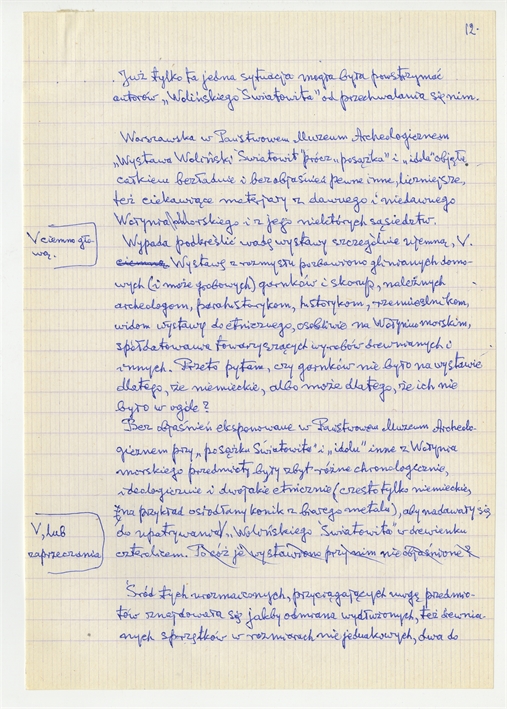 12.
Już tylko ta jedna sytuacja mogła była powstrzymać
autorów „Wolińskiego Światowita” od przechwalania się nim.
Warszawska w Państwowem Muzeum Archeologicznem
„Wystawa Woliński Światowit” prócz „posążka” i „idola” objęła
całkiem bezładnie i bez objaśnień pewne inne, liczniejsze,
też ciekawiące materjały z dawnego i niedawnego
morskiego i z jego niektórych sąsiedztw.
Wypada podkreślić wadę wystawy szczególnie ujemną, V.
V ciemnogło
wą.
Wystawę z rozmysłu pozbawiono glinianych domo-
wych (i może grobowych) garnków i skorup, należnych
archeologom, parahistorykom, historykom, rzemieślnikom,
widom wystawy do etnicznego, osobliwie na Wołyniu morskim,
spółdatowania towarzyszących wyrobów drewnianych i
innych. Przeto pytam, czy garnków nie było na wystawie
dlatego, że niemieckie, albo może dlatego, że ich nie
było w ogóle?
Bez objaśnień eksponowane w Państwowem Muzeum Archeolo-
gicznem przy „posążku Światowita” i „idolu” inne z Wołynia
morskiego przedmioty były zbyt różne chronologicznie,
ideologicznie i dwojakie etnicznie (często tylko niemieckie,
na przykład osiodłany konik z białego metalu), aby nadawały się
V, lub
zaprzeczania
do upatrywania „Wolińskiego Światowita” w drewienku
czterolicem. Po cóż je wystawiono przy nim nie objaśnione?
Śród tych urozmaiconych, przyciągających uwagę przedmio-
tów znajdowała się jakby odmiana wydłużonych, też drewnia-
nych sprzętków w rozmiarach nie jednakowych, dwa do